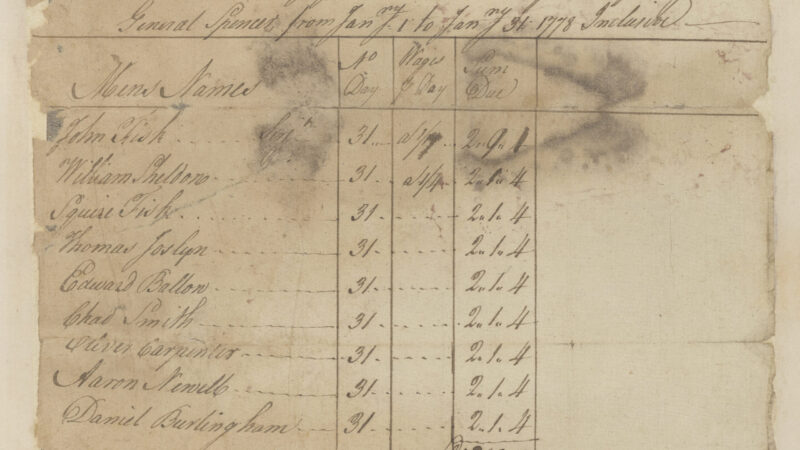 General Spencer from Janry 1 to Janry 31 1778 Inclusive
Mens Names No Day Wages p Day Sum Due
John Fish Sejt 31 a 1/7 2.9.1
William Sheldon 31 a 1/4 2.1.4
Squire Fish 31 2.1.4
Thomas Joslyn 31 2.1.4
Edward Ballou 31 2.1.4
Chad Smith 31 2.1.4
Oliver Carpenter 31 2.1.4
Aaron Newell 31 2.1.4
Daniel Burlingham 31 2.1.4